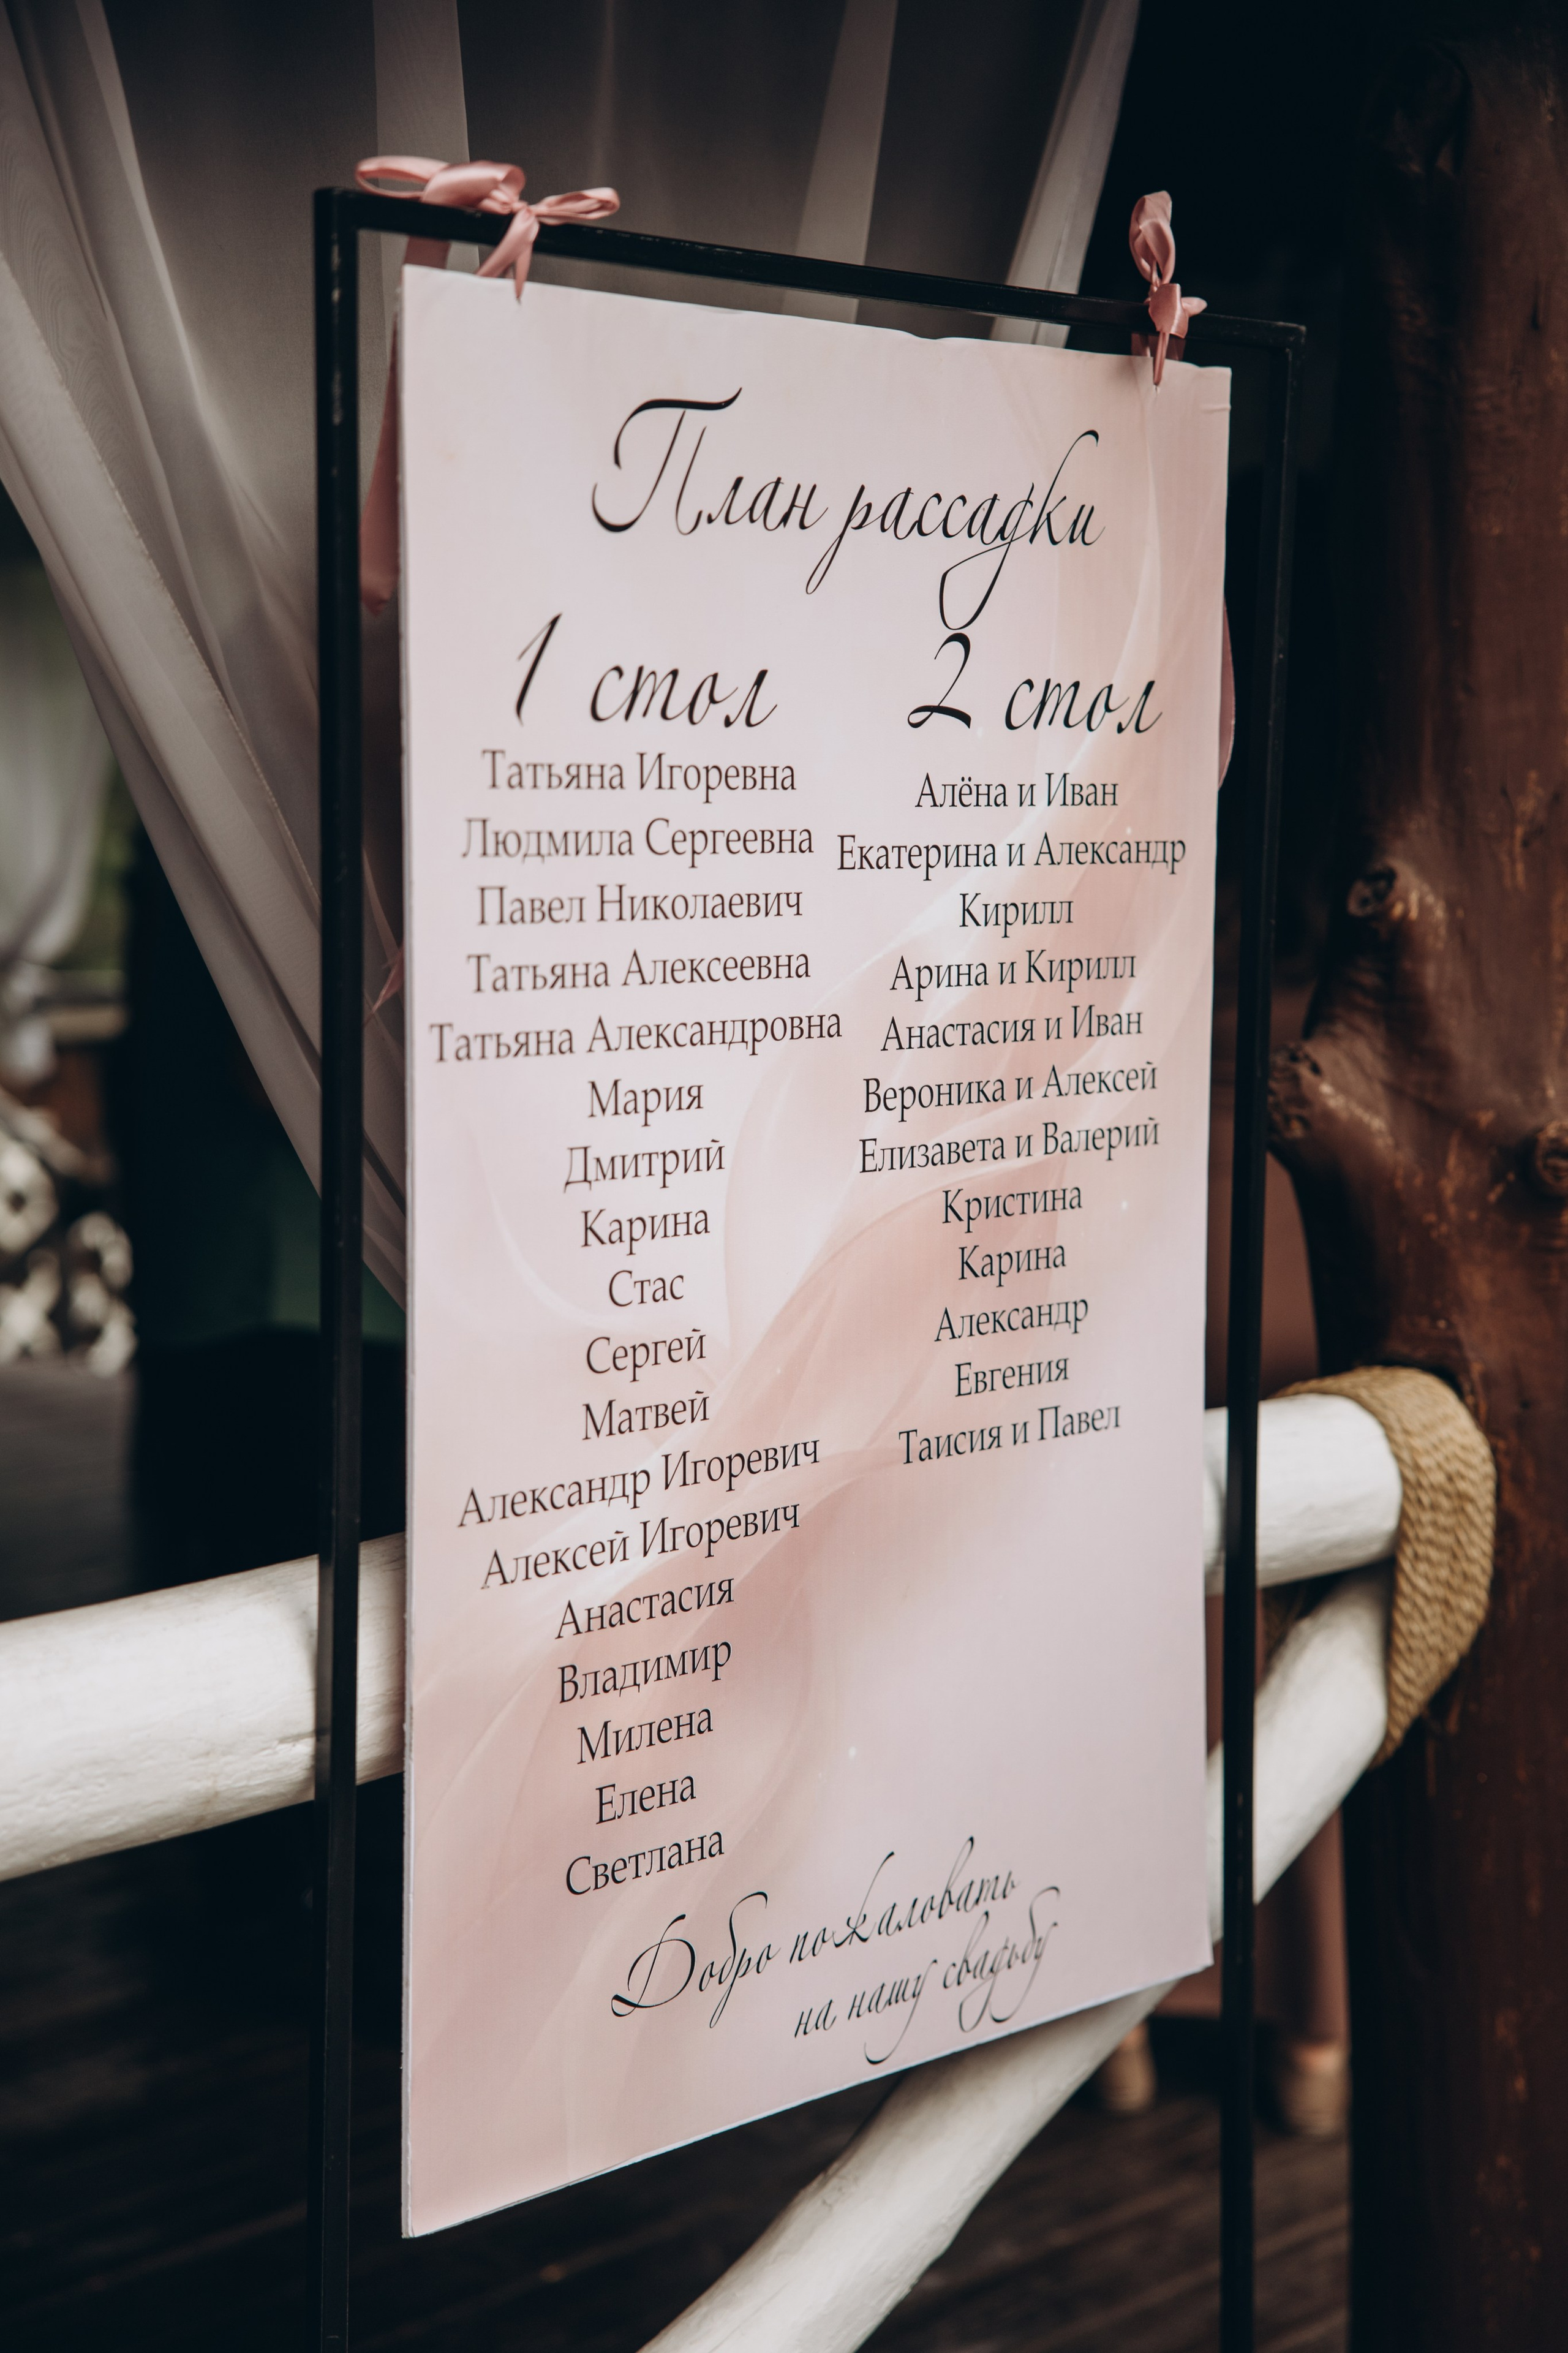 План рассадки
1 стол
Татьяна Игоревна
Людмила Сергеевна
Павел Николаевич
Татьяна Алексеевна
Татьяна Александровна
Мария
Дмитрий
Карина
Стас
Сергей
Матвей
Александр Игоревич
Алексей Игоревич
Анастасия
Владимир
Милена
Елена
Светлана
2 стол
Алёна и Иван
Екатерина и Александр
Кирилл
Арина и Кирилл
Анастасия и Иван
Вероника и Алексей
Елизавета и Валерий
Кристина
Карина
Александр
Евгения
Таисия и Павел
Добро пожаловать
на нашу свадьбу